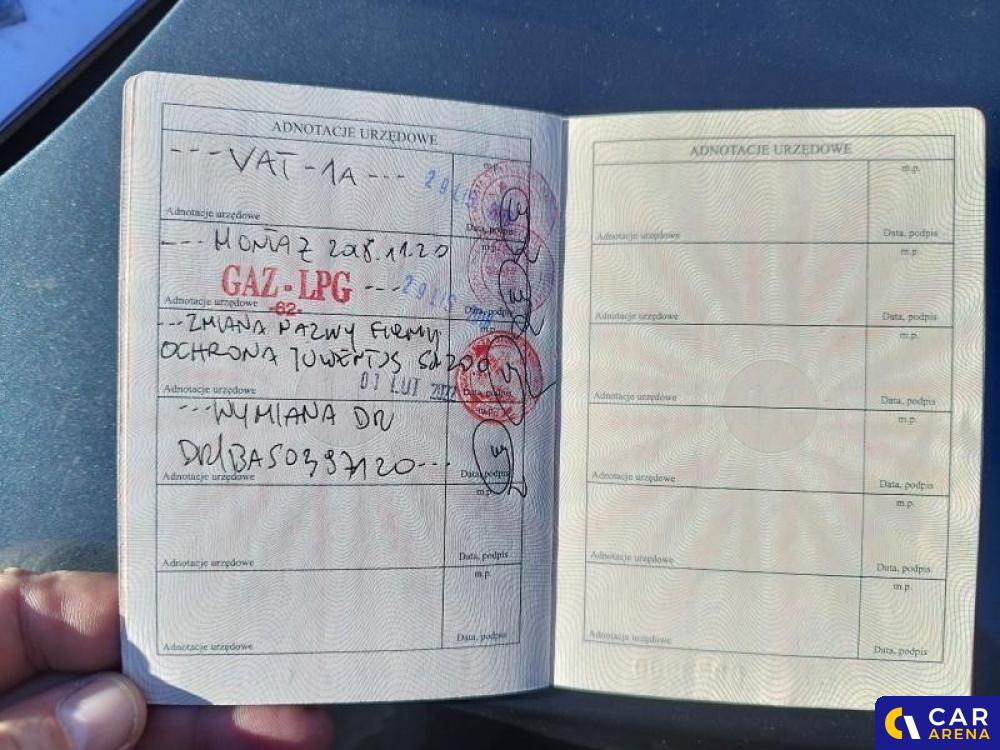 ADNOTACJE URZĘDOWE
---VAT-1A---
29 LIS
m.p.
Adnotacje urzędowe
Data, podpis
---MONTAŻ 2018.11.20
m.p.
GAZ-LPG ---
29 LIS
-62-
Adnotacje urzędowe
Data, podpis
---ZMIANA NAZWY FIRMY
m.p.
OCHRONA JUWENTUS
01 LUT
Adnotacje urzędowe
Data, podpis
---WYMIANA DR
m.p.
Adnotacje urzędowe
Data, podpis
m.p.
Adnotacje urzędowe
Data, podpis
m.p.
Adnotacje urzędowe
Data, podpis
ADNOTACJE URZĘDOWE
m.p.
Adnotacje urzędowe
Data, podpis
m.p.
Adnotacje urzędowe
Data, podpis
m.p.
Adnotacje urzędowe
Data, podpis
m.p.
Adnotacje urzędowe
Data, podpis
m.p.
Adnotacje urzędowe
Data, podpis
m.p.
Adnotacje urzędowe
Data, podpis
CAR
ARENA